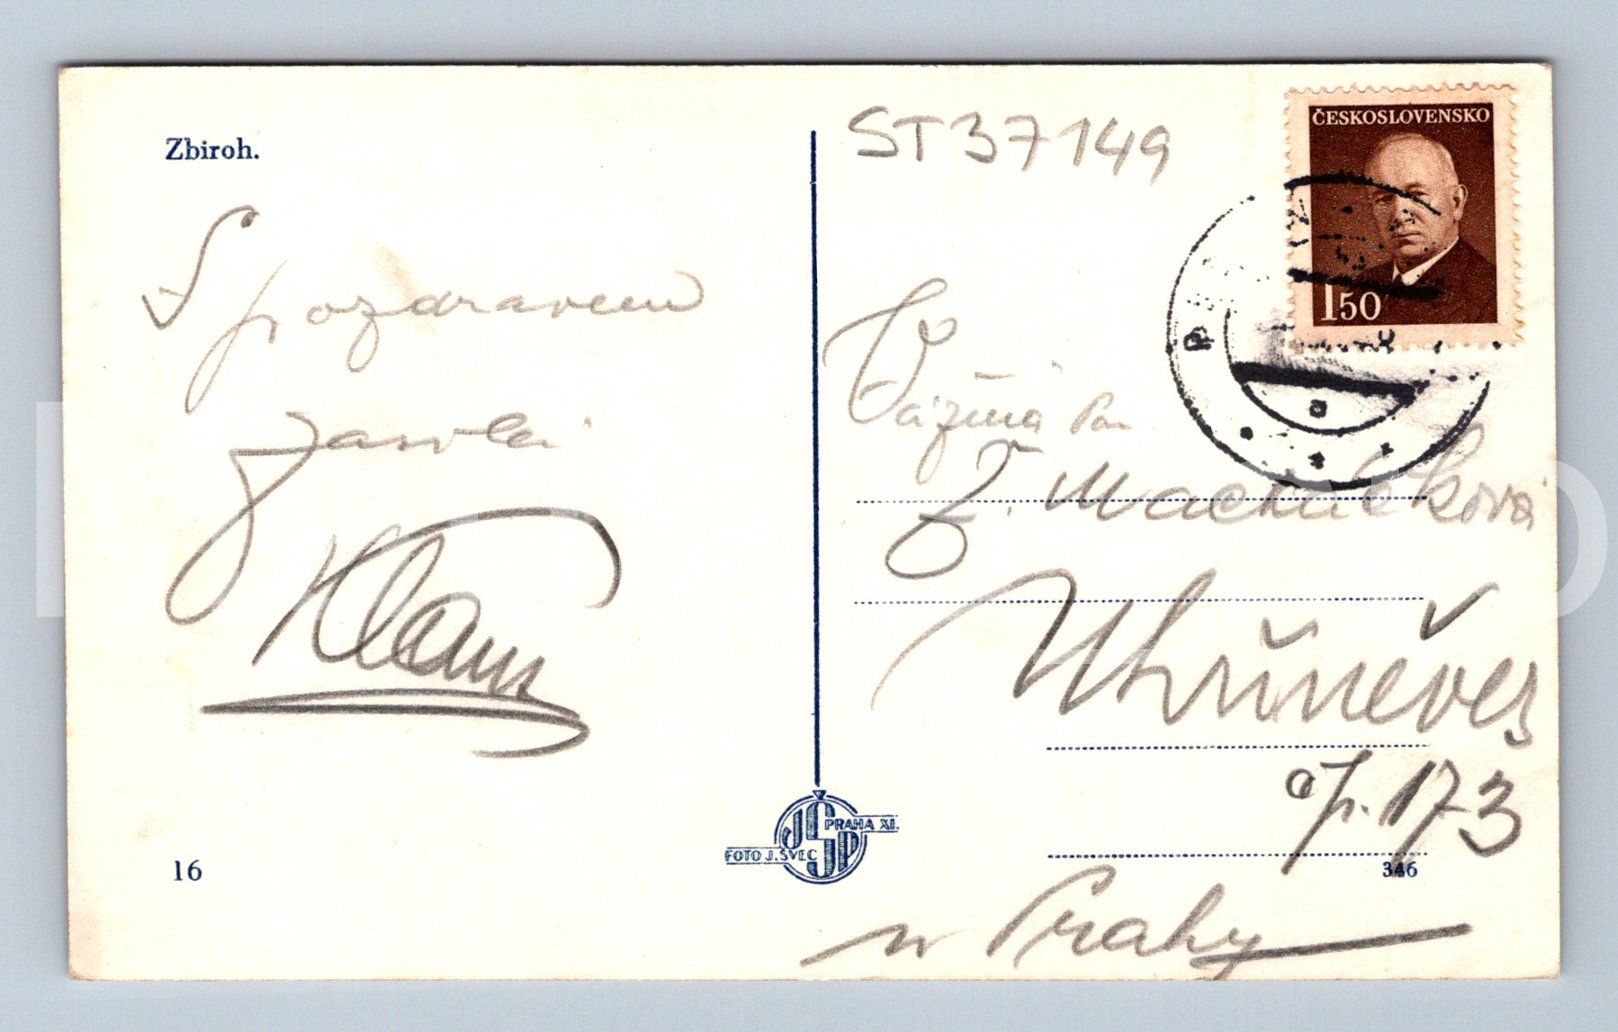 Zbiroh.
S pozdravem
ST37149
ČESKOSLOVENSKO
1 50
Vážená
Z.
Uhříněves
čp. 173
u Prahy
JŠP
PRAHA XI.
FOTO J. ŠVEC
16
346